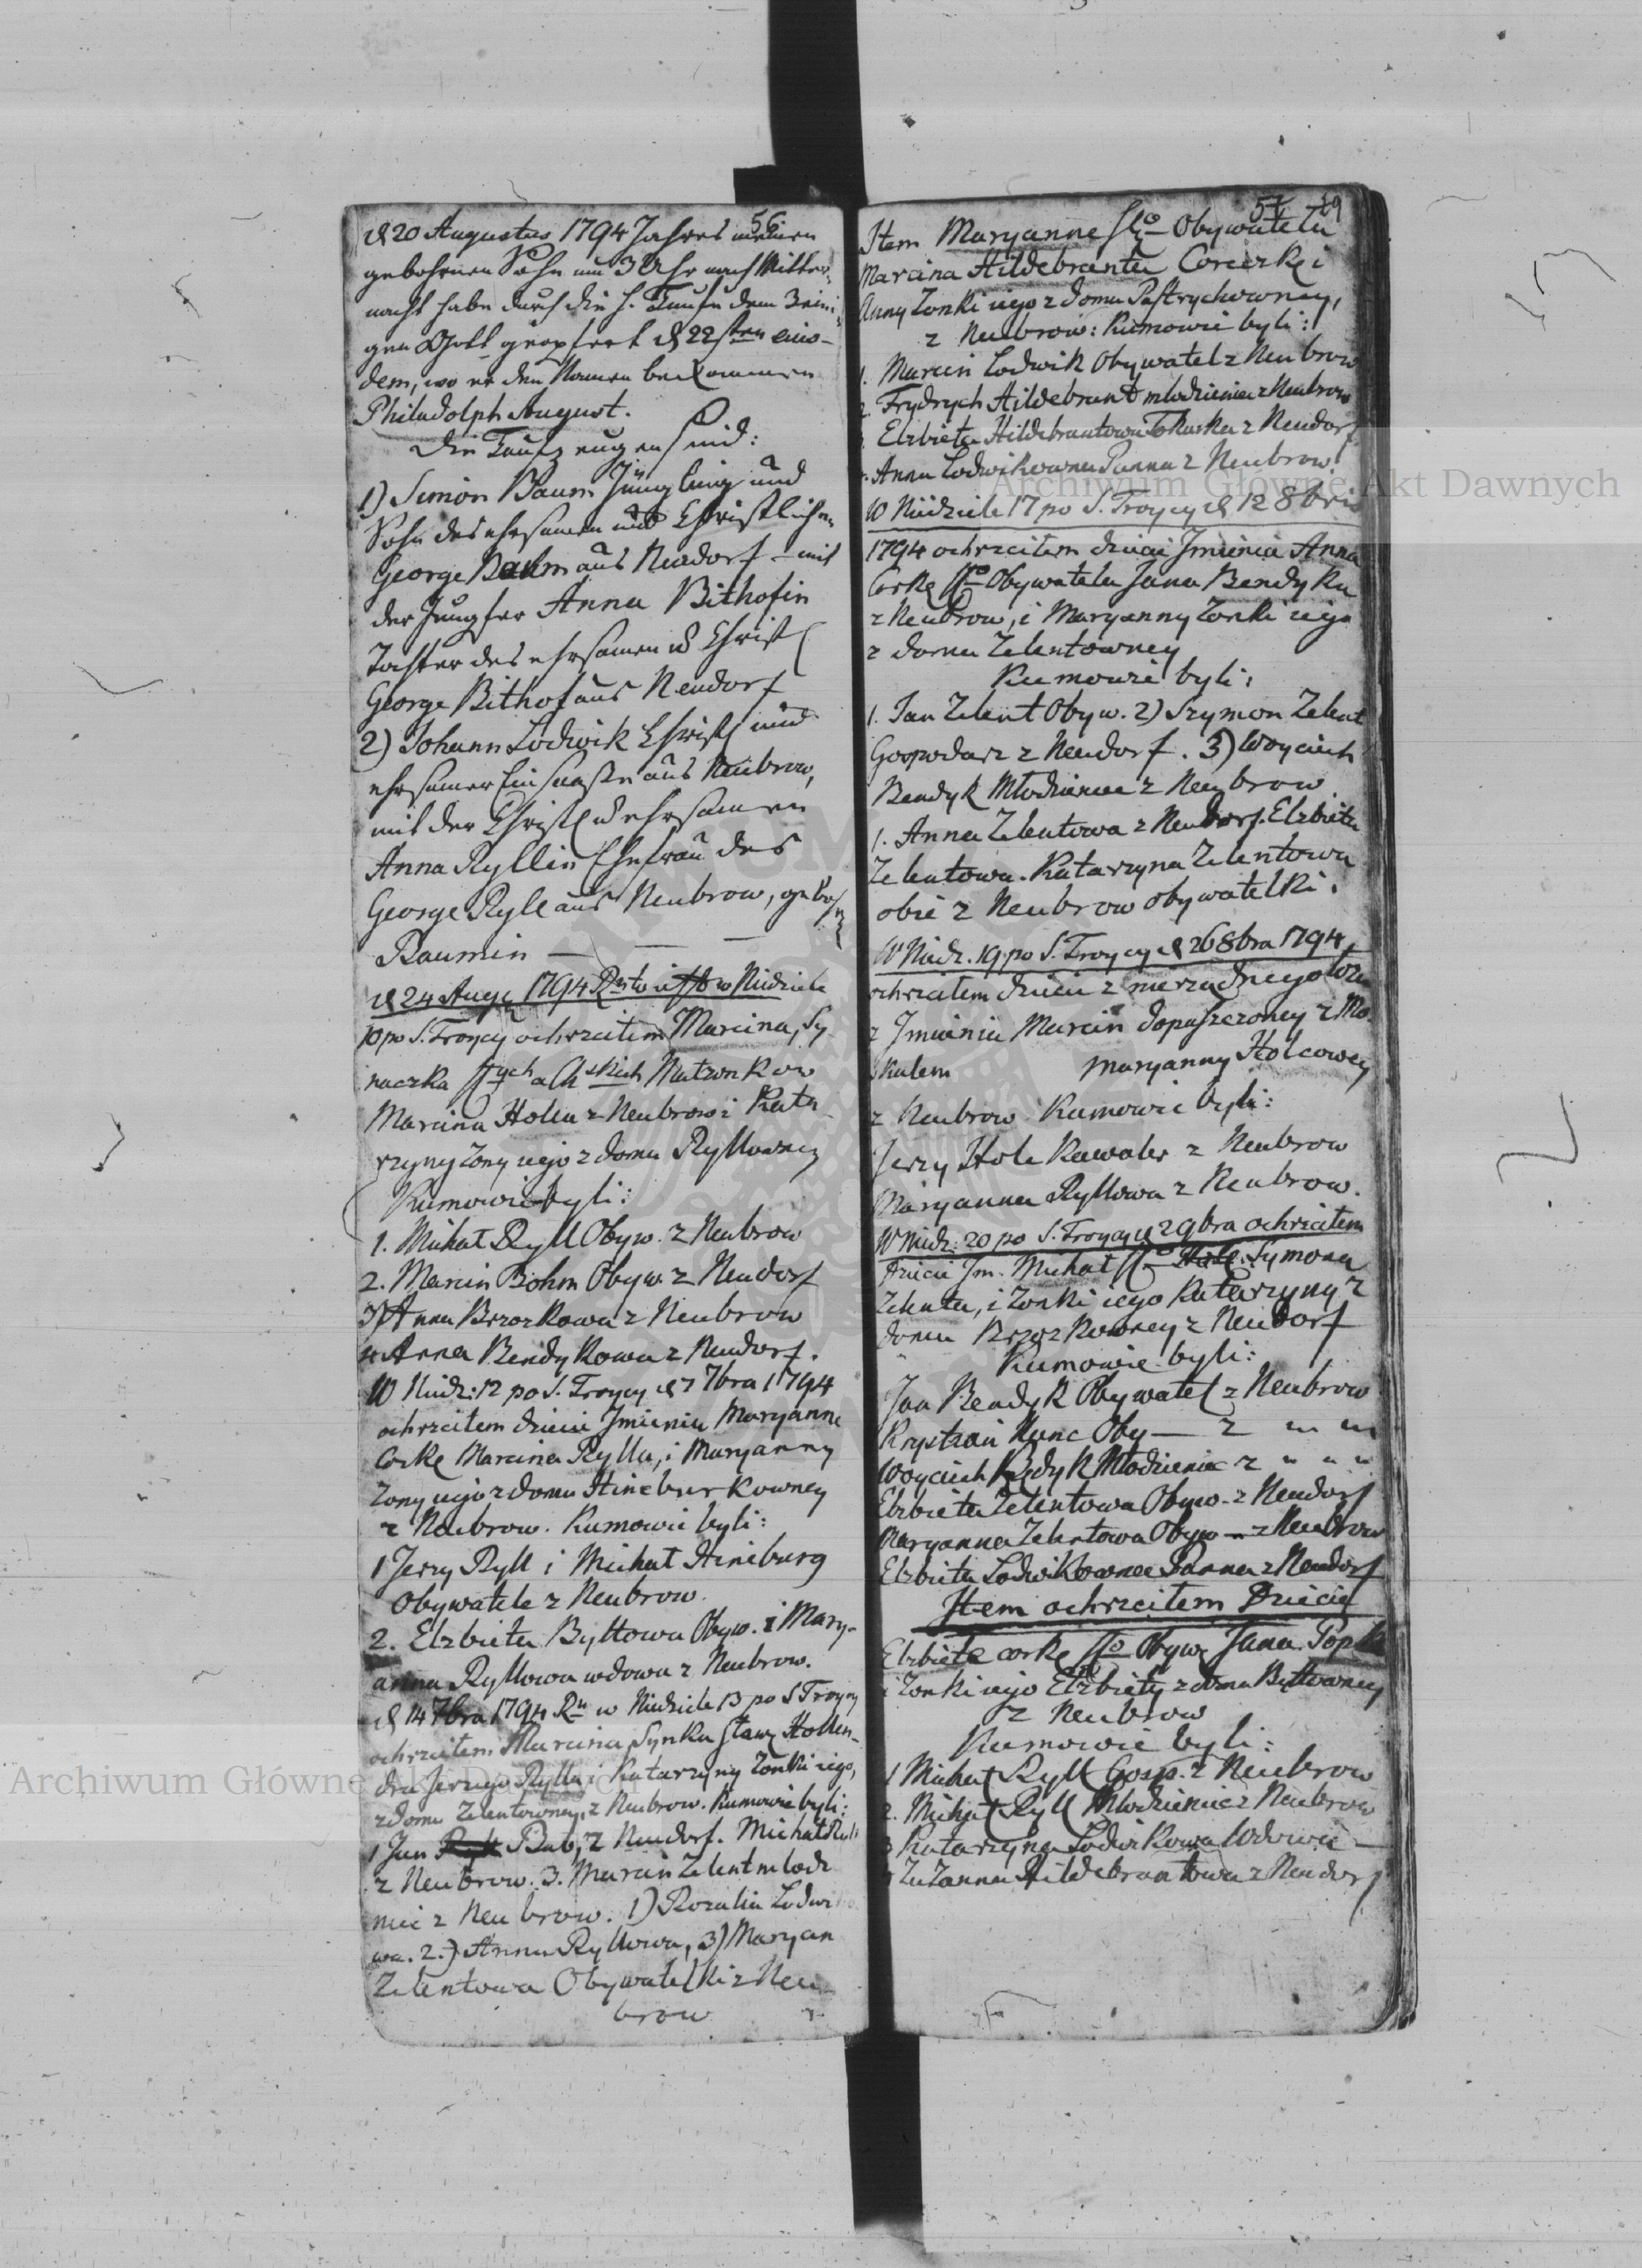 56
d 20 Augustus 1794 Jahres meinen
gebohrnen Sohn um 3 Uhr nach Mitter-
nacht habe durch die h. Taufe dem 3eini-
gen Gott geopfert d 22sten eius-
dem, wo er den Namen bekommen
Philadolph August.
Die Taufzeugen sind:
1) Simon Baum Jüngling und
Sohn des ehrsamen und Christlichen
George Baum aus Neudorf - mit
der Jungfer Anna Bithofin
Tochter des ehrsamen u Christl
George Bithof aus Neudorf
2) Johann Lodwik Christl und
ehrsamer Einsaaße aus Neubrow,
mit der Christl u ehrsamen
Anna Ryllin Ehefrau des
George Ryll aus Neubrow, gebohr
Baumin —
d 24 Aug 1794 w Niedziele
10 po S. Troycy ochrzcitem Marcina, Sy
naczka Matzonkow
Marcina Holca z Neubrow i Kata-
rzyny Zony iego z domu Ryllowney
Kumowie byli:
1. Michał Ryll Obyw. z Neubrow
2. Marcin Böhm Obyw. z Neudorf
3) Anna Brzozkowa z Neubrow
4 Anna Bendykowa z Neudorf.
W Niedz: 12 po S. Troycy d 7 7bra 1794
ochrzcitem dziecie Jmieniu Maryanne
Corke Marcina Rylla, i Maryanny
Zony iego z domu Hineburkowney
z Neubrow. Kumowie byli:
1 Jerzy Ryll i Michał Hineburg
Obywatele z Neubrow.
2. Elzbieta Byttowa Obyw. i Mary-
anna Ryllowa wdowa z Neubrow.
d 14 7bra 1794 Ru w Niedziele 13 po S Troycy
ochrzcitem Marcina Synka Sław Hollen-
dra Jerzego Rylla i Katarzyny Zonki iego,
z domu Zelentowney, z Neubrow. Kumowie byli:
1 Jan Bab, z Neudorf. Michał Ryll
z Neubrow. 3. Marcin Zelent mlodz
niec z Neubrow. 1) Rozalia Lodwi
wa. 2.) Anna Ryllowa, 3) Maryan
Zelentowa Obywatelki z Neu-
brow
57 29
Item Maryanne Sgo Obywatela
Marcina Hildebranta Coreczke i
Anny Zonki iego z domu Pastrychowney,
z Neubrow: Kumowie byli:
1. Marcin Lodwik Obywatel z Neubrow
2. Frydrych Hildebrant mlodzieniec z Neubrow
Elzbieta Hildebrantowa Tokarka z Neudorf
Anna Lodwikowna Panna z Neubrow
W Niedziele 17 po S. Troycy d 12 8bris
1794 ochrzcitem dziecie Jmienia Anna
Corke Sgo Obywatela Jana Bendyka
z Neubrow, i Maryanny Zonki iego
z domu Zelentowney
Kumowie byli:
1. Jan Zelent Obyw. 2) Szymon Zelent
Gospodarz z Neudorf. 3) Woyciech
Bendyk Młodzieniec z Neubrow
1. Anna Zelentowa z Neudorf. Elzbieta
Zelentowa. Katarzyna Zelentowa
obie z Neubrow obywatelki.
W Niedz. 19 po S. Troycy d 26 8bra 1794
ochrzcitem dziecie z nierzadnego
z Jmieniu Marcin dopuszczoney z Mo-
skalem Maryanny Holcowey
z Neubrow. Kumowie byli:
Jerzy Hole Kawaler z Neubrow
Maryanna Ryllowa z Neubrow.
W Niedz: 20 po S. Troycy d 2 9bra ochrzcitem
Dziecie Jm. Michał Symona
Zelenta, i Zonki iego Katarzyny z
domu Brzozkowney z Neudorf
Kumowie byli:
Jan Bendyk Obywatel z Neubrow
Krystian Kunc Oby — z
Woyciech Bendyk Młodzieniec z
Elzbieta Zelentowa Obyw. z Neudorf
Maryanna Zelentowa Obyw — z Neubrow
Elzbieta Lodwikowna Panna z Neudorf
Item ochrzcitem Dziecie
Elzbiete corke Sgo Obyw Jana Popka
i Zonki iego Elzbiety z domu Byttowney
z Neubrow
Kumowie byli:
1 Michał Ryll Gosp. z Neubrow
2. Michał Ryll Młodzieniec z Neubrow
3 Katarzyna Lodwikowa Wdowa —
Zuzanna Hildebrantowa z Neudorf
Archiwum Główne Akt Dawnych
Archiwum Główne Akt Dawnych